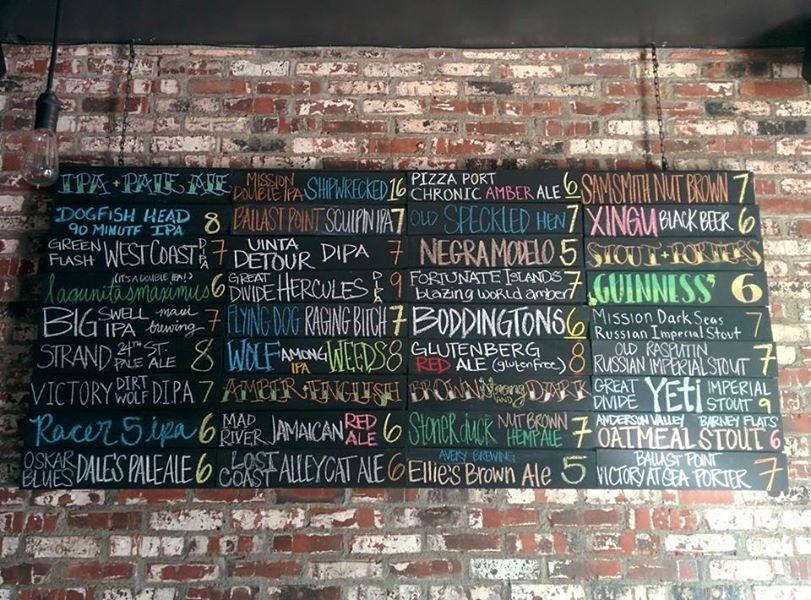 IPA + PALE ALE
DOGFISH HEAD
90 MINUTE IPA 8
GREEN FLASH WEST COAST DIPA 7
(IT'S A DOUBLE IPA!)
lagunitas maximus 6
BIG SWELL IPA maui brewing 7
STRAND 24TH ST. PALE ALE 8
VICTORY DIRT WOLF DIPA 7
Racer 5 ipa 6
OSKAR BLUES DALE'S PALE ALE 6
MISSION DOUBLE IPA SHIPWRECKED 16
BALLAST POINT SCULPIN IPA 7
UINTA DETOUR DIPA 7
GREAT DIVIDE HERCULES DIPA 9
FLYING DOG RAGING BITCH 7
WOLF AMONG WEEDS IPA 8
AMBER + ENGLISH
MAD RIVER JAMAICAN RED ALE 6
LOST COAST ALLEYCAT ALE 6
PIZZA PORT
CHRONIC AMBER ALE 6
OLD SPECKLED HEN 7
NEGRA MODELO 5
FORTUNATE ISLANDS
blazing world amber 7
BODDINGTONS 6
GLUTENBERG
RED ALE (gluten free) 8
BROWN Strong AND DARK
Stoner duck NUT BROWN HEMP ALE 7
AVERY BREWING
Ellie's Brown Ale 5
SAM SMITH NUT BROWN 7
XINGU BLACK BEER 6
STOUT + PORTERS
GUINNESS' 6
MISSION DARK SEAS
Russian Imperial Stout 7
OLD RASPUTIN
RUSSIAN IMPERIAL STOUT 7
GREAT DIVIDE YETI IMPERIAL STOUT 9
ANDERSON VALLEY BARNEY FLATS
OATMEAL STOUT 6
BALLAST POINT
VICTORY AT SEA PORTER 7